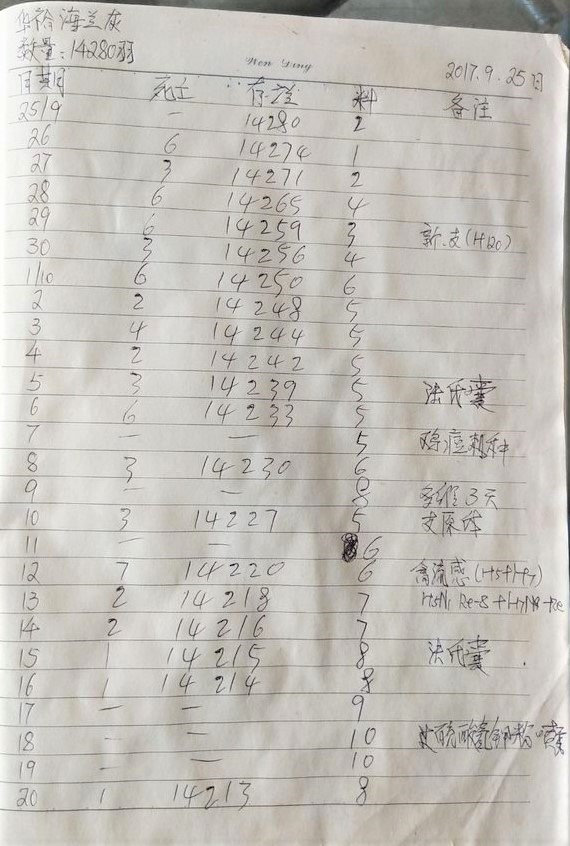 华裕海兰灰
数量：14280羽
Wen Ding 2017.9.25日
日期 死亡 存栏 料 备注
25/9 — 14280 2
26 6 14274 1
27 3 14271 2
28 6 14265 4
29 6 14259 3 新.支(H120)
30 3 14256 4
1/10 6 14250 6
2 2 14248 5
3 4 14244 5
4 2 14242 5
5 3 14239 5 法氏囊
6 6 14233 5
7 — — 5 鸡痘刺种
8 3 14230 6
9 — — 8 3天
10 3 14227 5 支原体
11 — — 6
12 7 14220 6 禽流感(H5+H7)
13 2 14218 7 H5N1 Re-8+H7N9
14 2 14216 7
15 1 14215 8 法氏囊
16 1 14214 8
17 — — 9
18 — — 10
19 — — 10
20 1 14213 8